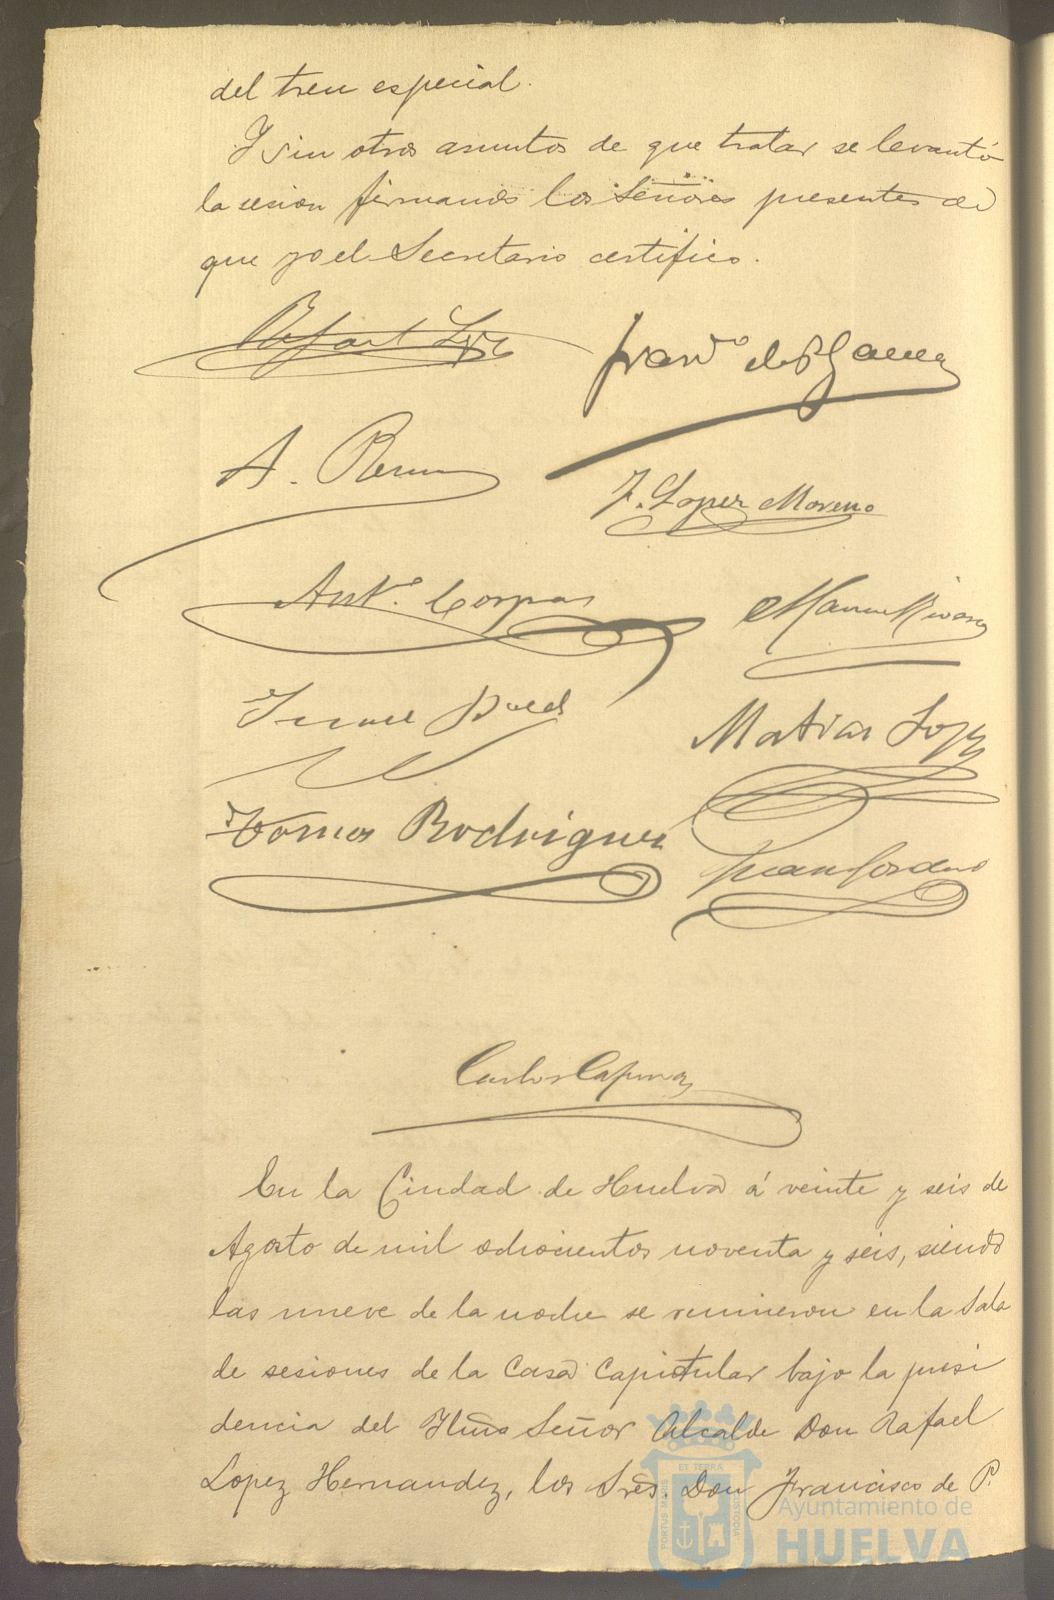 del tren especial.
Y sin otros asuntos de que tratar se levantó
la sesion firmando los Señores presentes de
que yo el Secretario certifico.
Rafael Lopez
Franco de P Garcia
A.
F. Lopez Moreno
Anto. Corpas
Manuel
Matias Lopez
Tomas Rodriguez
Juan Cordero
Carlos
En la Ciudad de Huelva á veinte y seis de
Agosto de mil ochocientos noventa y seis, siendo
las nueve de la noche se reunieron en la Sala
de sesiones de la Casa Capitular bajo la presi
dencia del Ylmo Señor Alcalde Don Rafael
Lopez Hernandez, los Sres. Don Francisco de P.
ET TERRA
PORTUS MARIS
CUSTODIA
Ayuntamiento de
HUELVA